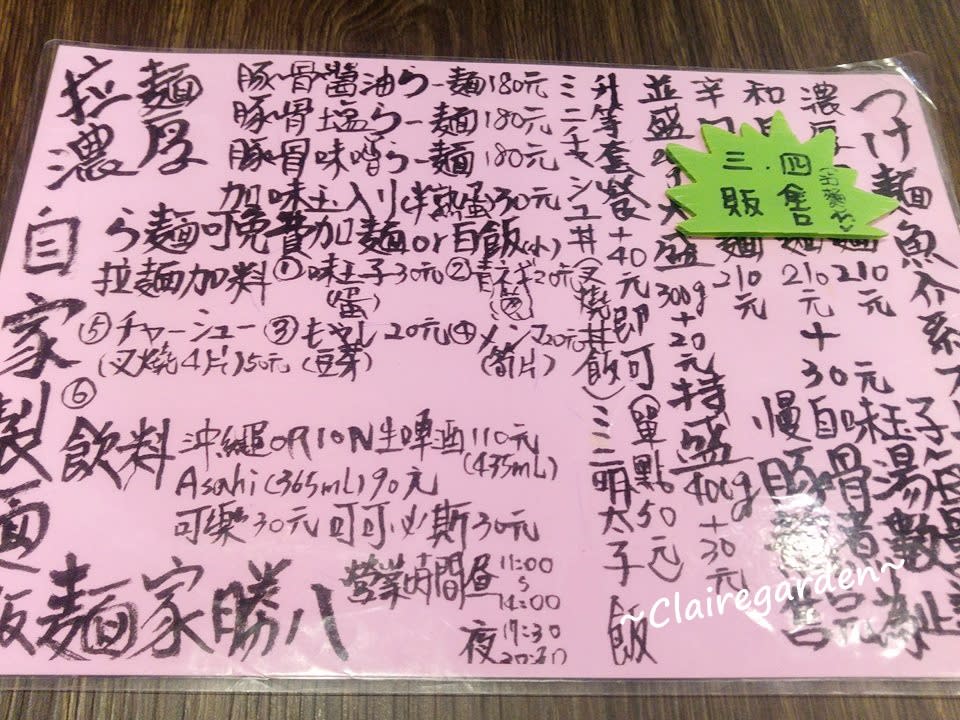 拉麵
濃厚
豚骨醬油らー麵180元
豚骨塩らー麵180元
豚骨味噌らー麵180元
加味玉入り(半熟蛋)30元
ら麵可免費加麵or白飯(小)
拉麵加料①味玉子30元②青ネギ20元
(蛋)
(蔥)
⑤チャーシュー③もやし20元④メンマ20元
(叉燒4片)50元(豆芽)
(筍片)
⑥
飲料
沖繩ORION生啤酒110元
(435mL)
Asahi(365mL)90元
可樂30元可可必斯30元
營業時間昼11:00
14:00
夜17:30
自家製麵
麵家勝八
つけ麵魚介系
濃
210元
和
210元+30元味玉子
辛
麵210元
並盛
大盛300g+20元
特盛400g+30元
升等套餐+40元即可(單點50元)
ミニチャーシュー丼(叉燒丼飯)
ミニ明太子飯
慢自
豚骨湯
三.四
販售
~Clairegarden~